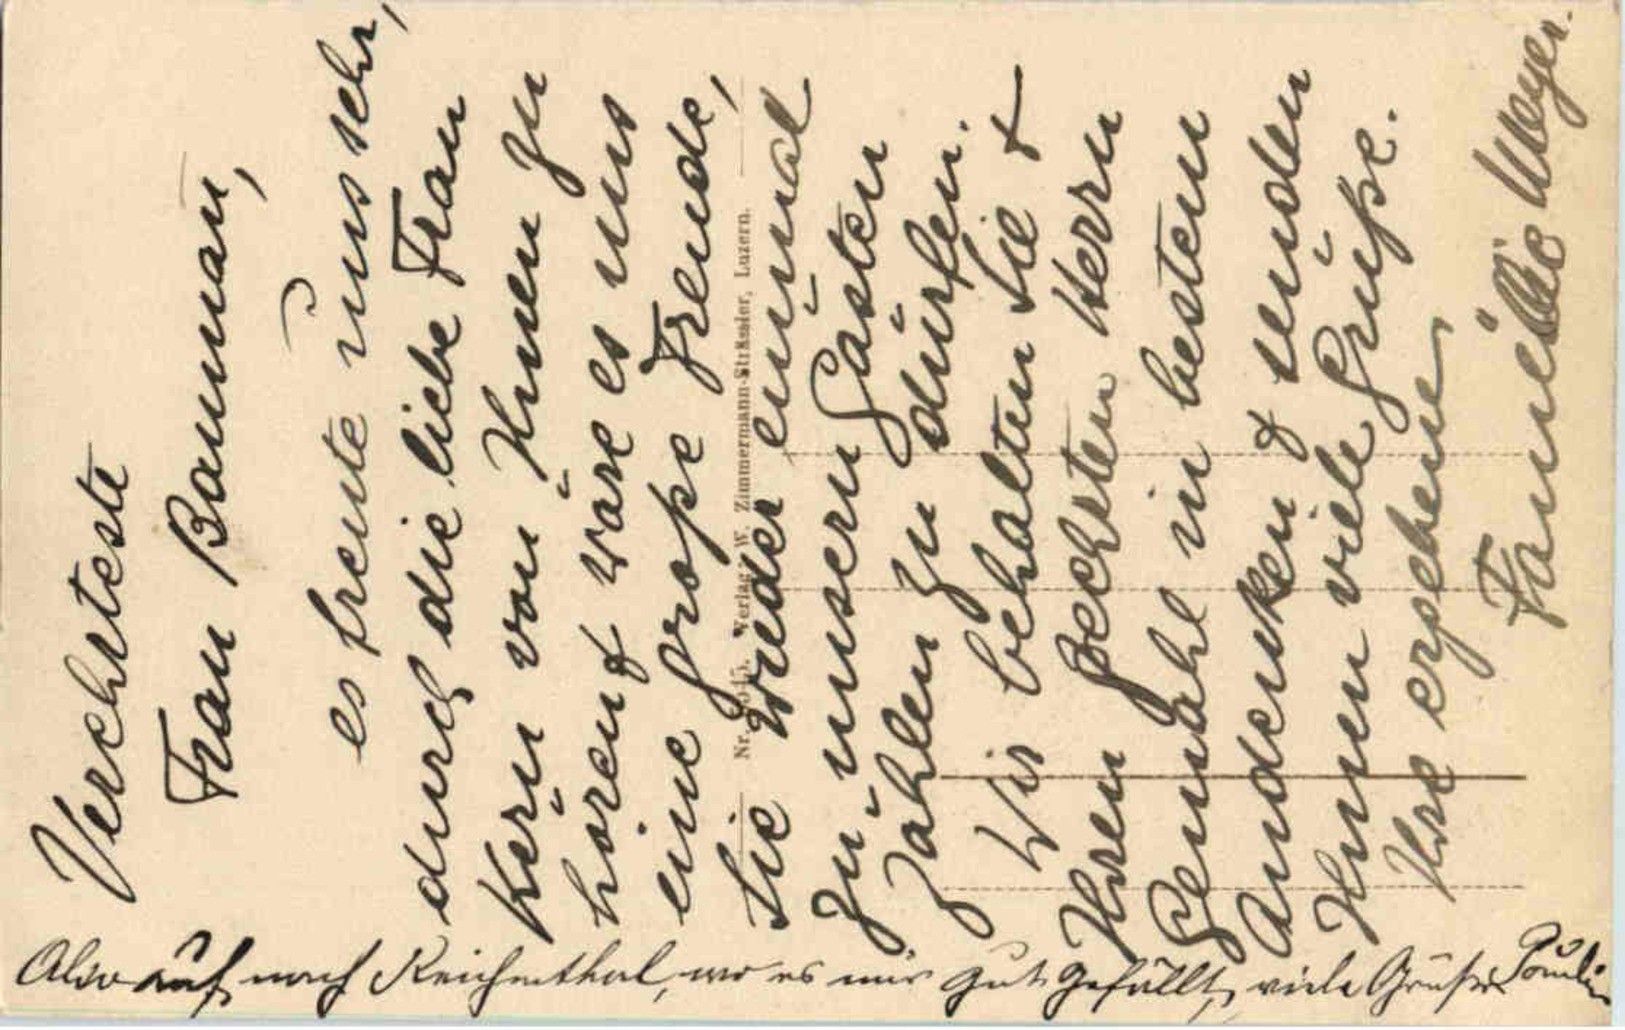 Verehrteste
Frau Bauman,
es freute uns sehr,
durch die liebe Frau
Kern von Ihnen zu
hören & wäre es uns
eine große Freude,
Sie wieder einmal
zu unsern Gästen
zählen zu dürfen.
Wir behalten Sie &
Ihren geehrten Herrn
Gemahl in bestem
Andenken & senden
Ihnen viele Grüße.
Ihre ergebene
Familie Meyer.
Also auf nach Reichenthal, wo es mir gut gefällt, viele Grüße
Nr. Verlag W. Zimmermann-Strässler, Luzern.